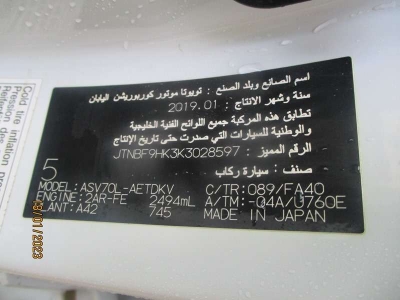 اسم الصانع وبلد الصنع : تويوتا موتور كوربوريشن اليابان
سنة وشهر الانتاج : 2019.01
تطابق هذه المركبة جميع اللوائح الفنية الخليجية
والوطنية للسيارات التي صدرت حتى تاريخ الإنتاج
الرقم المميز : JTNBF9HK3K3028597
صنف : سيارة ركاب
5
MODEL: ASV70L-AETDKV C/TR: 089/FA40
ENGINE: 2AR-FE 2494mL A/TM: -04A/U760E
PLANT: A42 745 MADE IN JAPAN
Cold tire inflation
Pression des
/01/2023